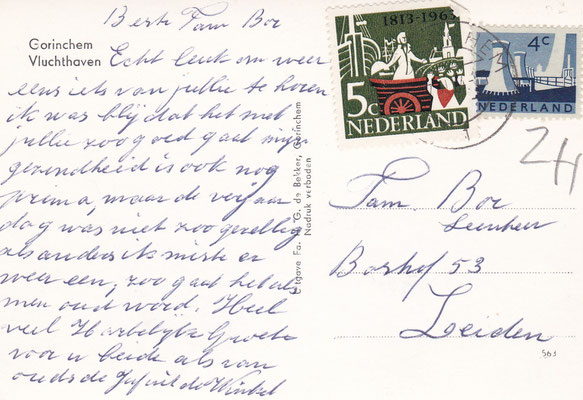 Beste Fam Boc
Gorinchem
Vluchthaven
Echt leuk om weer
eens iets van jullie te horen
ik was blij dat het met
jullie zoo goed gaat mijn
gezondheid is ook nog
prima, maar de verjaar
dag was niet zoo gezellig
als anders ik miste er
weer een, zoo gaat het als
men oud word. Heel
veel Hartelijke Groete
voor u beide als van
ouds de Jufvr de Winkel
Uitgave Fa. G. de Bekker, Gorinchem
Nadruk verboden
1813-1963
5c
NEDERLAND
4c
NEDERLAND
24
Fam Boc
Boshof 53
Leiden
563